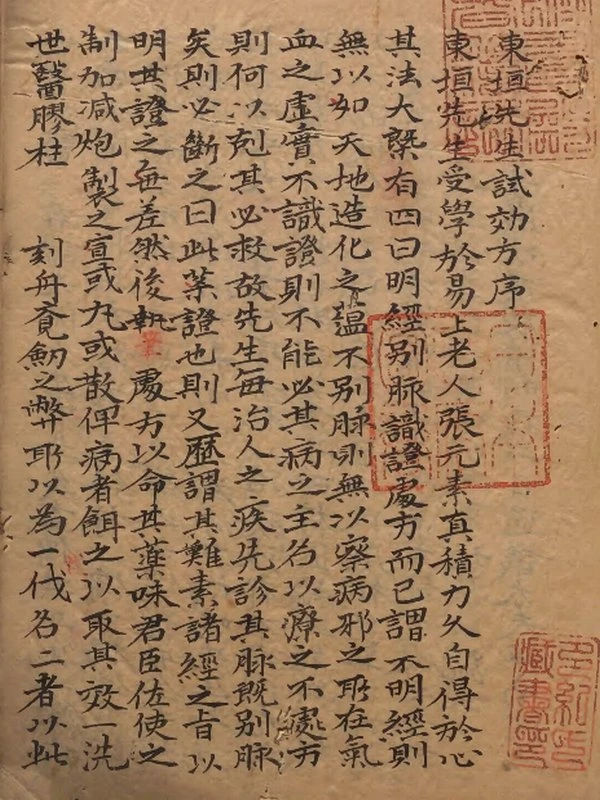 東垣先生試効方序
東垣先生受學於易上老人張元素真積力久自得於心
其法大槩有四曰明經别脉識證處方而已謂不明經則
無以知天地造化之蘊不别脉則無以察病邪之所在氣
血之虛實不識證則不能必其病之主名以療之不處方
則何以剋其必救故先生每治人之疾先診其脉既别脉
矣則必斷之曰此某證也則又歷謂其難素諸經之旨以
明其證之無差然後執筆處方以命其藥味君臣佐使之
制加减炮製之宣或丸或散俾病者餌之以取其效一洗
世醫膠柱 刻舟 劒之弊耶以為一代名二者以此